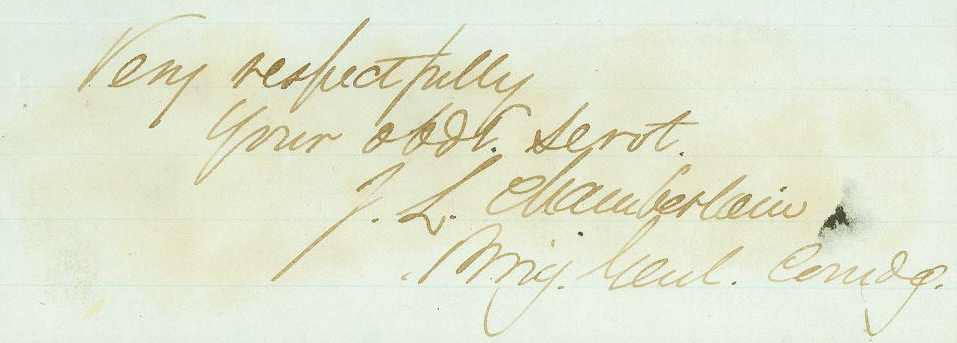 Very respectfully
Your obdt. servt.
J. L. Chamberlain
Brig. Genl. Comdg.